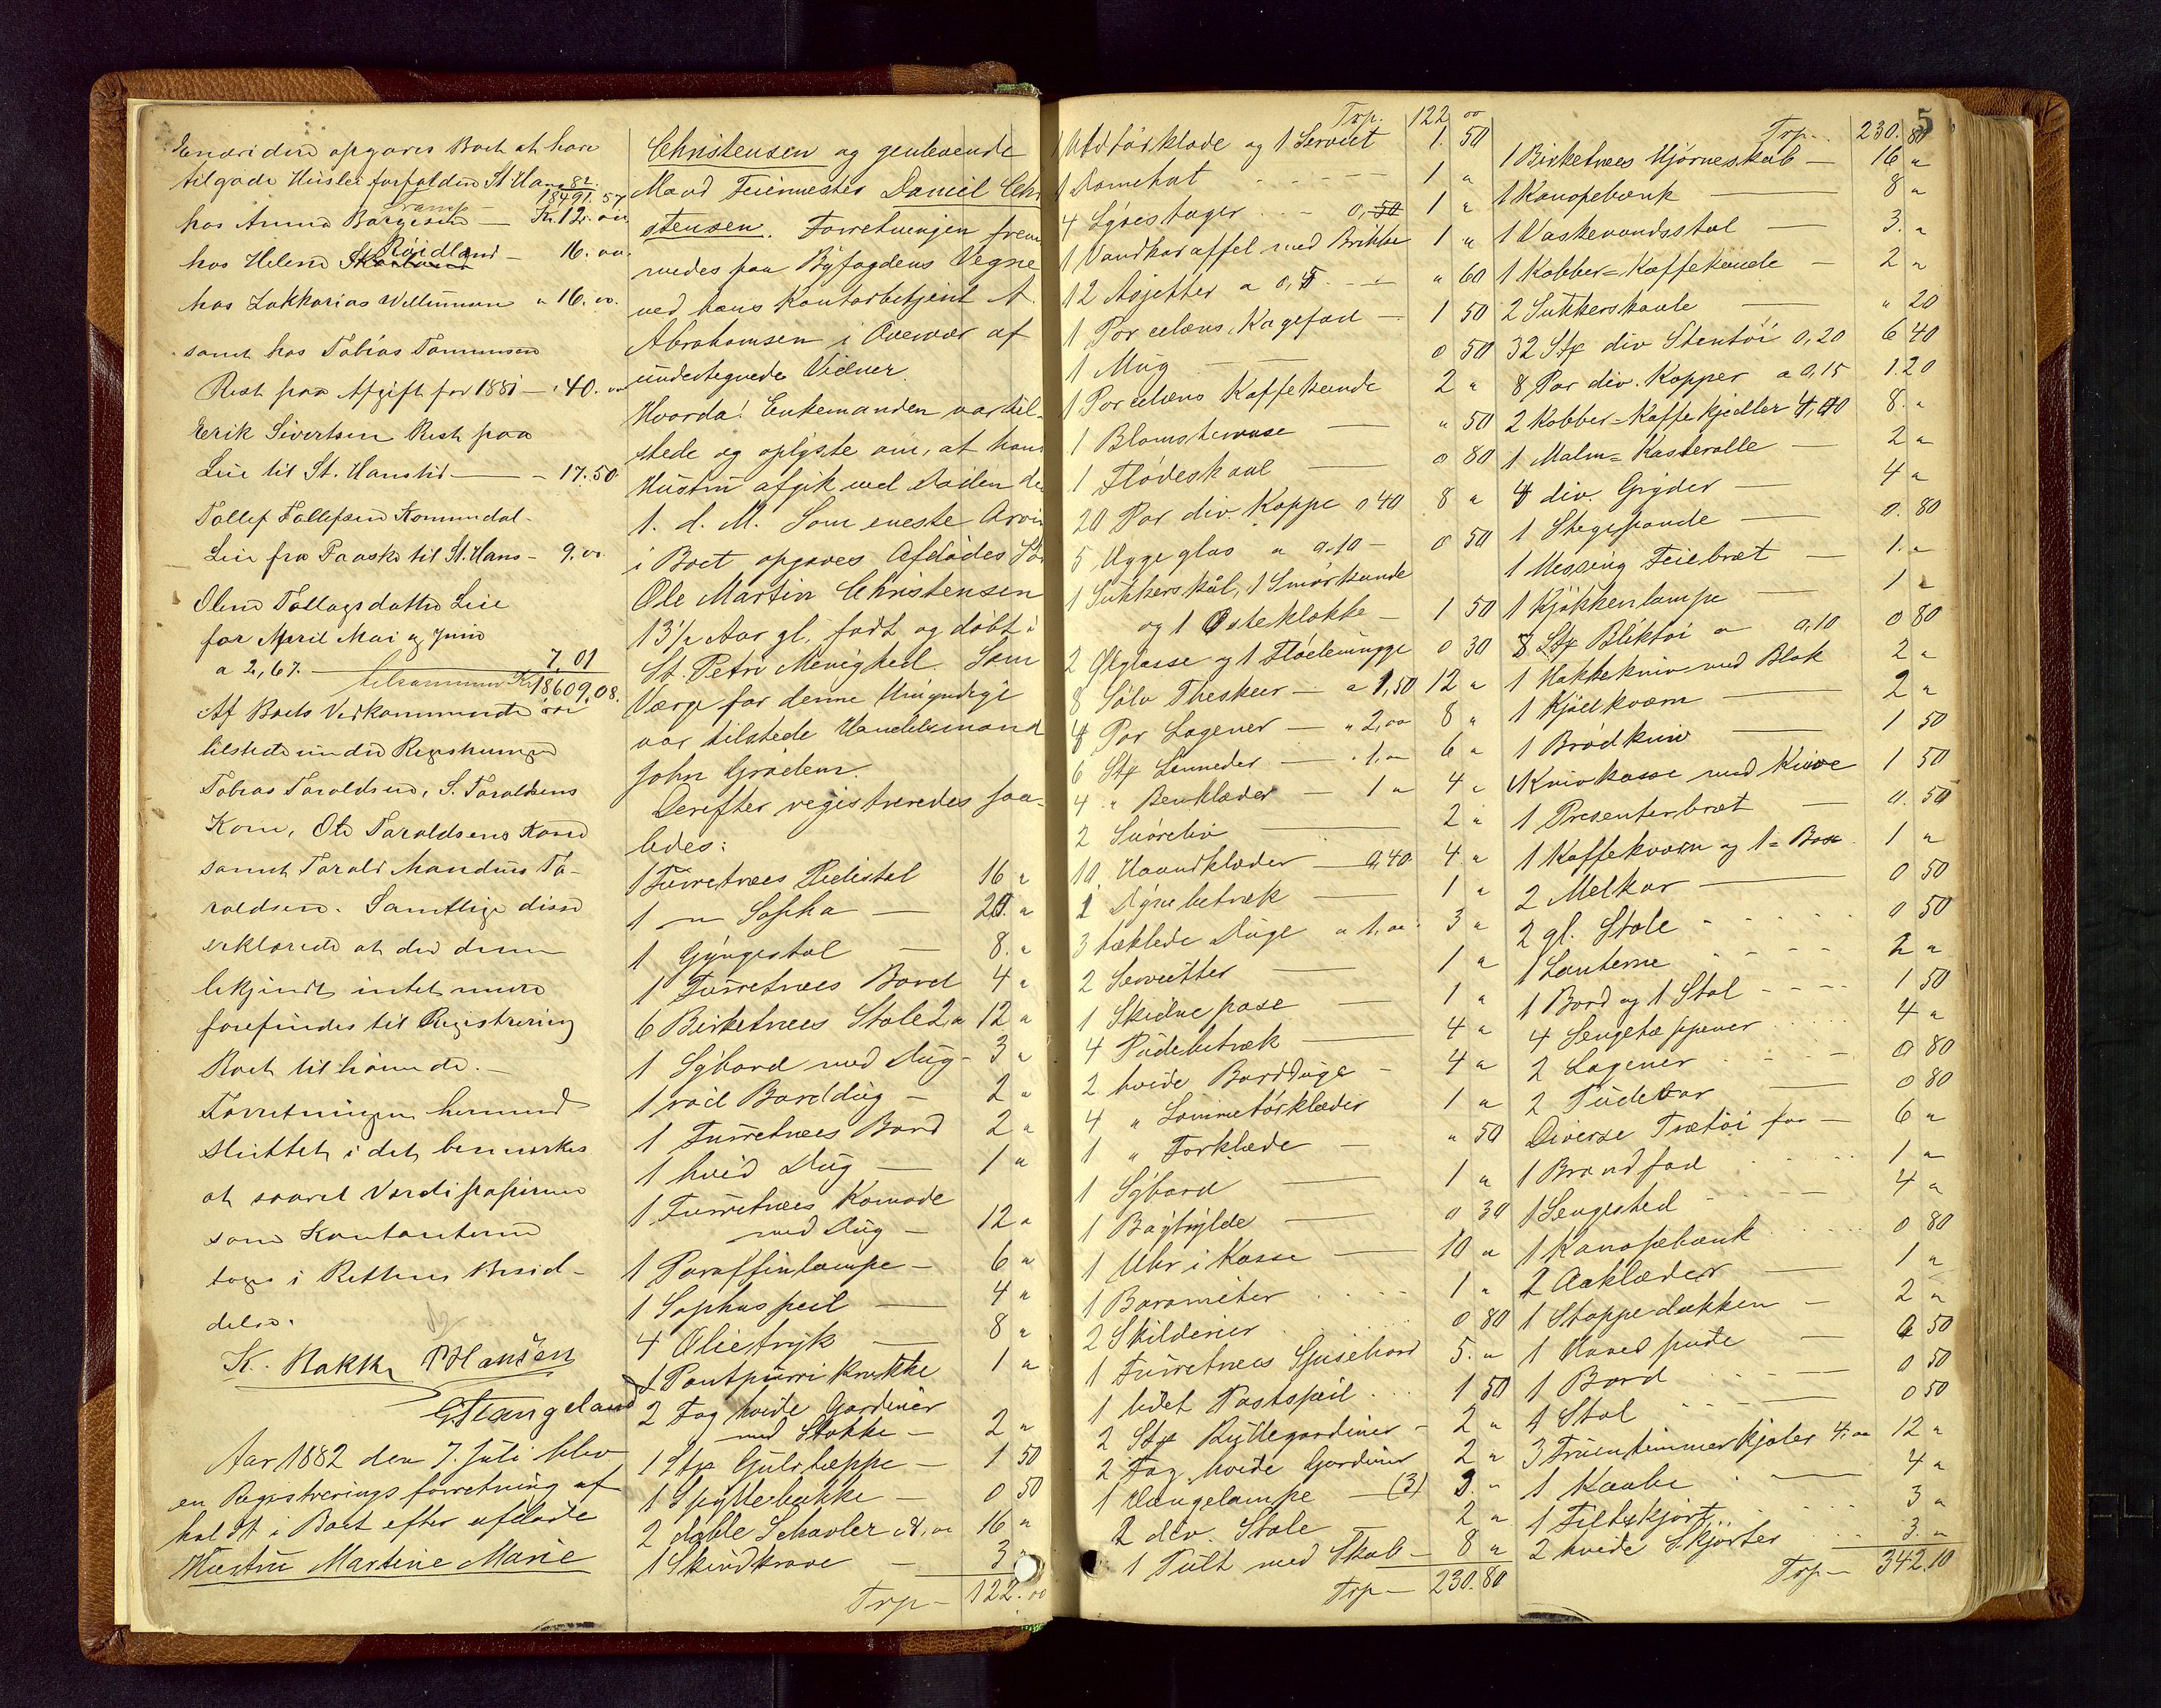 Endvidere opgaves Boet at have
tilgode Huusleie forfalden St Hans 82.
Transp 18491.57
hos Anna Børgesen — Kr. 12. oo
hos Helene Røidland — 16. oo.
hos Zakkarias Wellumsen " 16. oo.
samt hos Tobias Tommesen
Rest paa Afgift for 1881 — 40. oo
Erik Sivertsen Rest paa
Leie til St. Hanstid — 17.50
Tollef Tollefsen Romundal
Leie fra Paaske til St. Hans — 9. oo.
Olene Tollagsdatter Leie
for April Mai og Juni
a 2,67. — 7,01
tilsammen Kr 18609,08.
Af Boets Vedkommende var
tilstede under Registreringen
Tobias Taraldsen, S. Taraldsens
Kone, Ole Taraldsens Kone
samt Tarald Mandius Ta-
raldsen. Samtlige disse
erklærede at der dem
bekjendt intet mere
forefindes til Registrering
Boet tilhørende. —
Forretningen hermed
sluttet i det bemærkes
at saavel Værdipapirerne
som Kontanterne
toges i Rettens Besid-
delse.
K. Bakka P Hansen
G Stangeland
Aar 1882 den 7. Juli blev
en Registreringsforretning af
holdt i Boet efter afdøde
Hustru Martine Marie
Christensen og genlevende
Mand Feiermester Daniel Chri
stensen. Forretningen frem
medes paa Byfogdens Vegne
ved hans Kontorbetjent A.
Abrahamsen i Overvær af
undertegnede Vidner.
Hvorda! Enkemanden var til-
stede og oplyste om, at hans
Hustru afgik ved Døden den
1. d. M. Som eneste Arvin
i Boet opgaves Afdødes Søn
Ole Martin Christensen
13½ Aar gl. født og døbt i
St. Petri Menighed. Som
Værge for denne Umyndige
var tilstede Handelsmand
John Grødem.
Derefter registreredes saa-
ledes:
1 Furretræes Pidestal 16 "
1 — " Sopha — 20. "
1 Gyngestol — 8. "
1 Furretræes Bord 4 "
6 Birketræes Stole 2, " 12 "
1 Sybord med Dug — 3 "
1 rød Borddug — 2 "
1 Furretræes Bord 2 "
1 hvid Dug — 1 "
1 Furretræes Komode
med Dug — 12 "
1 Paraffinlampe — 6 "
1 Sophaspeil — 4 "
4 Olietryk — 8 "
1 Pautpurri Krukke 1 "
2 Fag hvide Gardiner
med Stokke — 2 "
1 Stk Gulvtæppe — 1 50
1 Spyttebakke — 0 50
2 doble Schavler a 8, oo 16 "
1 Skindkrave — 3 "
Trp — 122. oo
Trp. 122 oo
1 Uldtørklæde og 1 Serviet 1. 50
1 Damehat - - - - 1 "
4 Lysestager - - 0, 50 1 "
1 Vandkaraffel med Brikke 1 "
12 Asjetter a 0,5 - - " 60
1 Porcelæns Kagefad — 1 50
1 Mug — 0 50
1 Porcelæns Kaffekande 2 "
1 Blomstervase — " 50
1 Flødeskaal — 0 80
20 Par div. Koppe 0 40 8 "
5 Æggeglas a 0,10 — 0 50
1 Sukkerskål, 1 Smørkande
og 1 Osteklokke — 1 50
2 Ølglasse og 1 Flødemugge 0 30
8 Sølv Theskeer — a 1,50 12 "
4 Par Lagener — " 2,oo 8 "
6 Stk Linneder — " 1. oo 6 "
4 " Benklæder — 1 " 4 "
2 Snøreliv — 2 "
10 Haandklæder — 0,40 4. "
1 Dynebetræk — 1 "
3 hæklede Duge a 1, oo. 3 "
2 Servietter — 1 "
1 Skidne pose — 1 "
4 Pudebetræk — 4 "
2 hvide Bordduge — 4 "
4 " Lommetørklæder 1 "
1 " Forklæde — " 50
1 Sybord — 1 "
1 Boghylde — 0 30
1 Uhr i Kasse — 10 "
1 Barometer . . . . 1 "
2 Skilderier . . . . 0 80
1 Furretræes Spisebord 5. "
1 lidet Postspeil . . . 1 50
2 Stk Rullegardiner — 2 "
2 Fag hvide Gardiner 2 "
1 Hængelampe — (3) 3. "
2 div. Stole 2 "
1 Pult med Skab — 8 "
Trp — 230.80
5
Trp. . 230. 80
1 Birketræes Hjørneskab — 16 "
1 Kanapebænk — 8 "
1 Vaskevandsstol — 3. "
1 Kobber = Kaffekande — 2 "
2 Sukkerskaale — " 20
32 Stk div Stentøi 0,20 6 40
8 Par div. Kopper a 0,15 1 20
2 Kobber = Kaffekjedler 4,00 8. "
1 Malm = Kasterolle — 2 "
4 div. Gryder — 4 "
1 Stegepande — 0. 80
1 Messing Feiebræt — 1. "
1 Kjøkkenlampe — 1 "
8 Stk Bliktøi a 0,10 0 80
1 Hakkekniv med Blok 2 "
1 Kjødkværn — 2 "
1 Brødkniv — 1 50
1 Knivkasse med Knive 1 50
1 Presenterbræt — 0. 50
1 Kaffekværn og 1 = Bøsse 1 "
2 Melkar — 0 50
2 gl. Stole - - - - 0 50
1 Lanterne - - - - 2 "
1 Bord og 1 Stol - - - - 1 50
4 Sengetæppener . . . . 4 "
2 Lagener - - - - 0 80
2 Pudevar — 0 80
Diverse Trætøi for — 6 "
1 Brændfad . . . . 1 "
1 Sengested - - - 4 "
1 Kanapebænk . . . . 0 80
2 Aaklæder — 1 "
1 Stoppedækken — 2 "
1 Hovedpude — 0 50
1 Bord - - - — 0 50
1 Stol - - — 0 50
3 Fruentimmerkjoler 4. oo 12 "
1 Kaabe — 4 "
1 Filtskjørt . . . . 3 "
2 hvide Skjørter . . . 3. "
Trp — 342.10